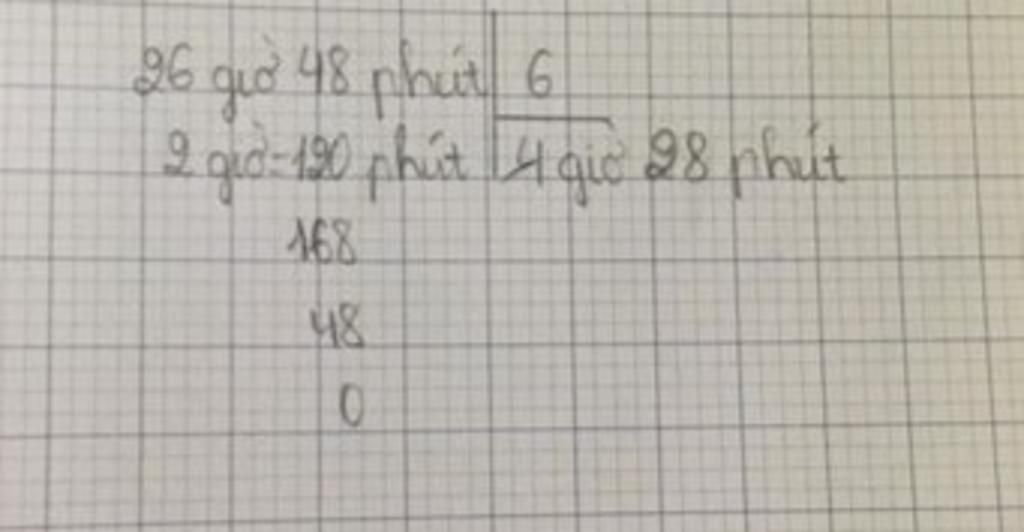 26 giờ 48 phút 6
2 giờ=120 phút 4 giờ 28 phút
168
48
0